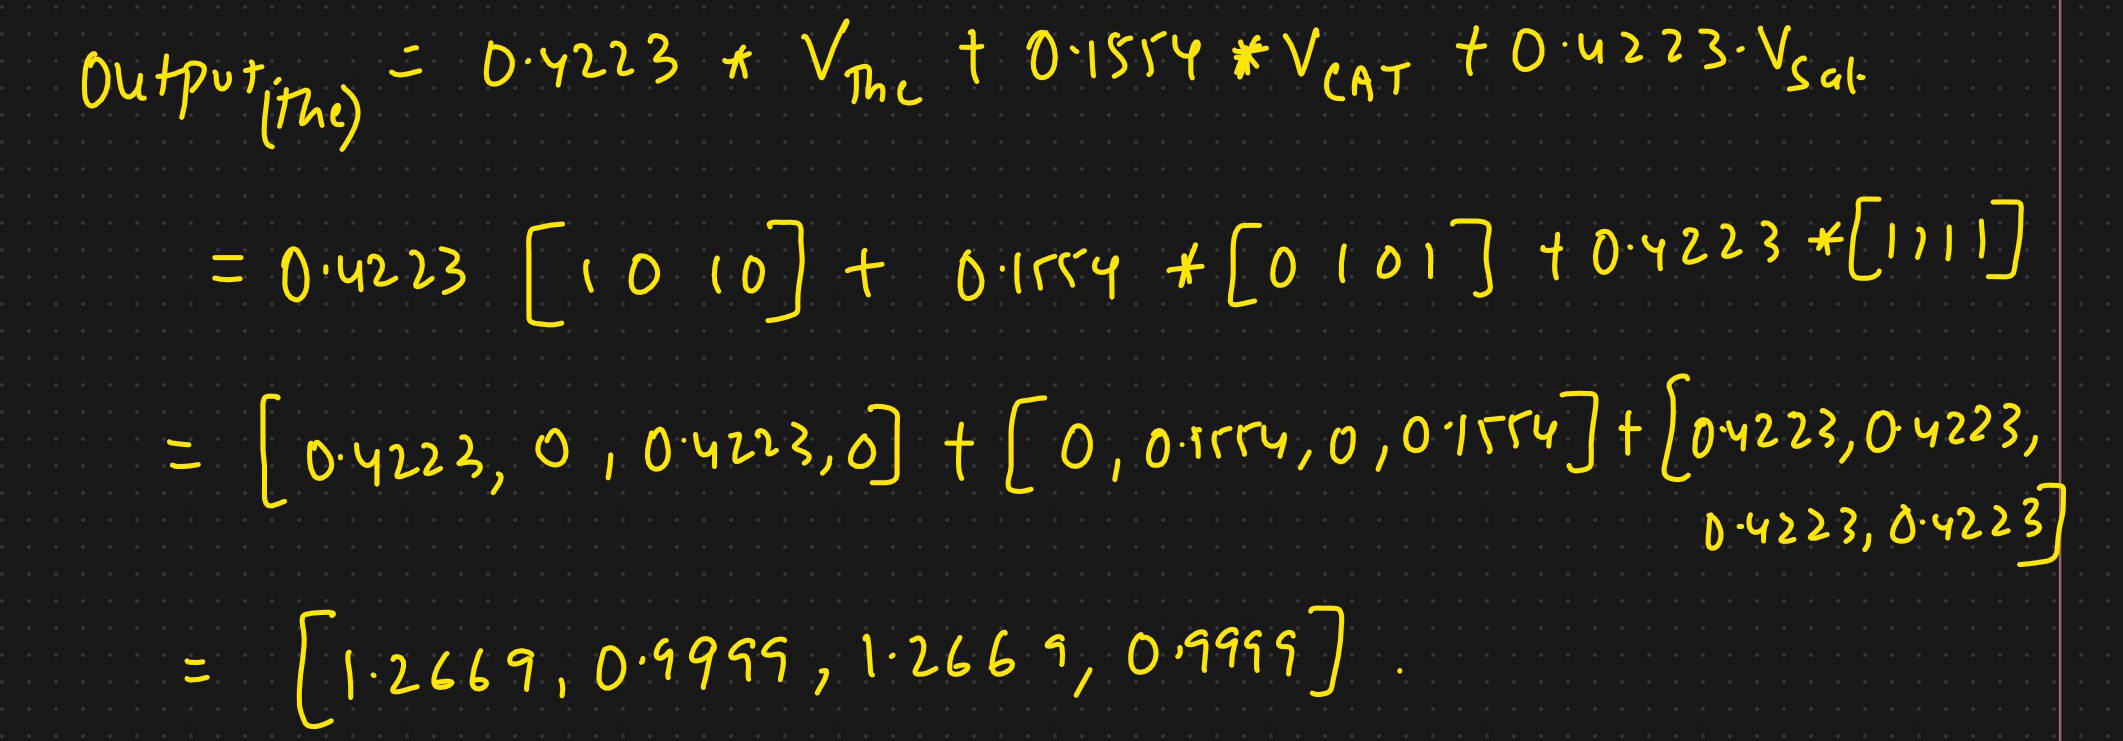 Output(the) = 0.4223 * VThe + 0.1554 * VCAT + 0.4223. VSat.
= 0.4223 [1 0 1 0] + 0.1554 * [0 1 0 1] + 0.4223 * [1 1 1 1]
= [0.4223, 0, 0.4223, 0] + [0, 0.1554, 0, 0.1554] + [0.4223, 0.4223,
0.4223, 0.4223]
= [1.2669, 0.9999, 1.2669, 0.9999].